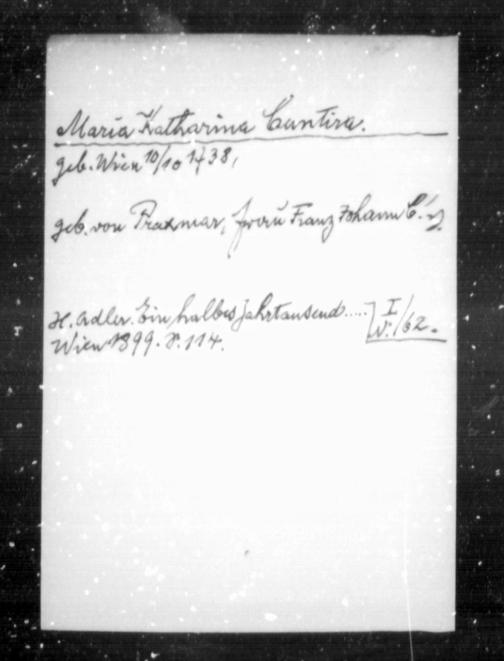 Maria Katharina Cantira.
geb. Wien 10/10 1738,
geb. von Praxmar, Franz Johann C.
H. Adler. Ein halbes Jahrtausend..... I
Wien 1899. S. 114. /62.